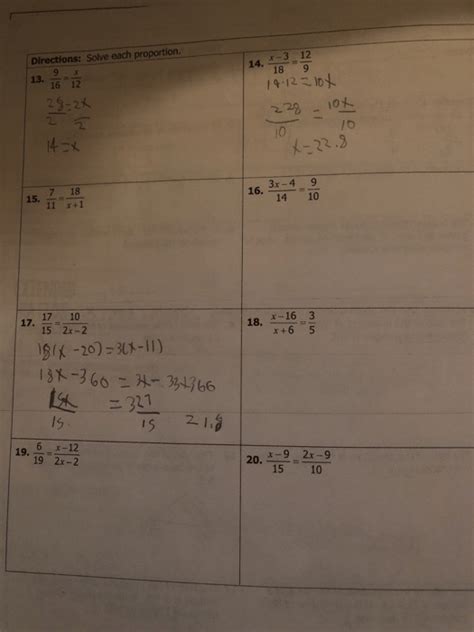 Directions: Solve each proportion.
13. 9/16 = x/12
28 = 2x
2 2
14 = x
14. x-3/18 = 12/9
18·12 = 10x
228 = 10x
10 10
x = 22.8
15. 7/11 = 18/x+1
16. 3x-4/14 = 9/10
17. 17/15 = 10/2x-2
18(x-20) = 3(x-11)
18x-360 = 3x-
= 327
15 15
18. x-16/x+6 = 3/5
19. 6/19 = x-12/2x-2
20. x-9/15 = 2x-9/10